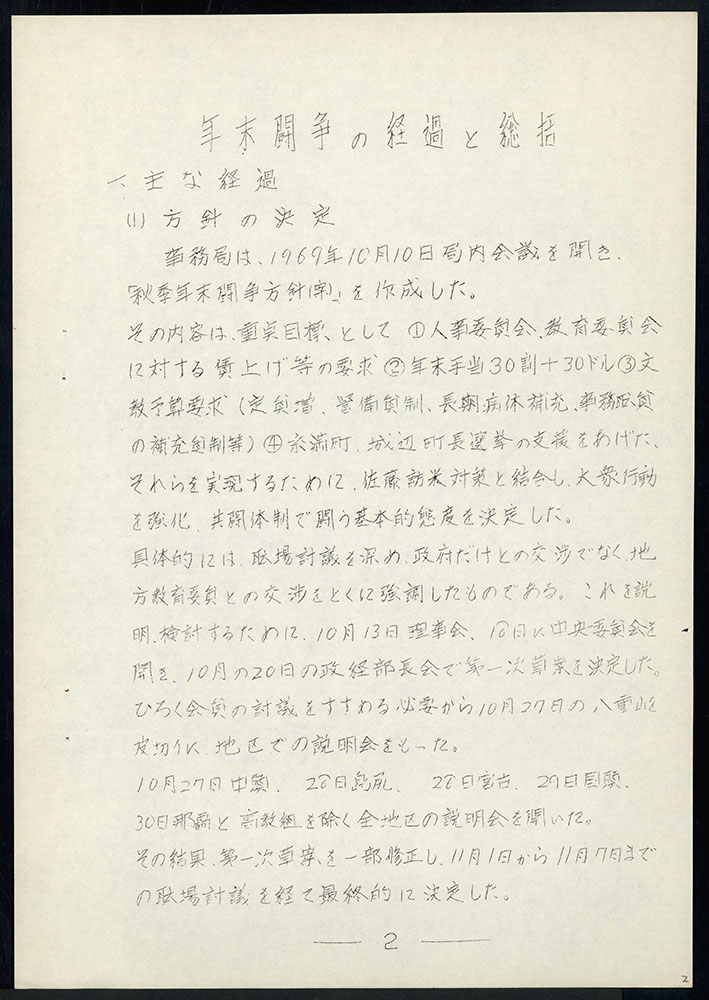 年末闘争の経過と総括
一、主な経過
(1) 方針の決定
事務局は、1969年10月10日局内会議を開き、
「秋季年末闘争方針(案)」を作成した。
その内容は、重点目標、として ①人事委員会、教育委員会
に対する賃上げ等の要求 ②年末手当30割＋30ドル ③文
教予算要求 (定員増、警備員制、長期病休補充、事務職員
の補充員制等) ④糸満町、城辺町長選挙の支援をあげた、
それらを実現するために、佐藤訪米対策と結合し、大衆行動
を強化、共闘体制で闘う基本的態度を決定した。
具体的には、职場討議を深め、政府だけとの交渉でなく、地
方教育委員との交渉をとくに強調したものである。これを説
明、検討するために、10月13日理事会、18日に中央委員会を
開き、10月の20日の政経部長会で第一次草案を決定した。
ひろく会員の討議をすすめる必要から10月27日の八重山を
皮切りに、地区での説明会をもった。
10月27日中頭、28日島尻、28日宮古、29日国頭、
30日那覇と高教組を除く全地区の説明会を開いた。
その結果、第一次草案を一部修正し、11月1日から11月7日まで
の职場討議を経て最終的に決定した。
2
2